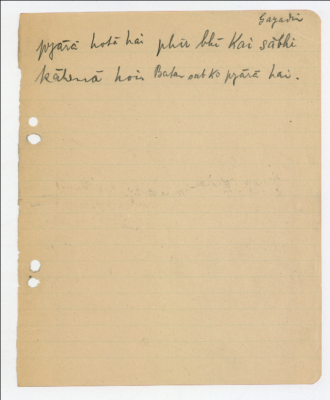 Gayadin
pyārā hotā hai phir bhī Kai sābhi
kāhenā hois Batan sab ko pyārā hai.